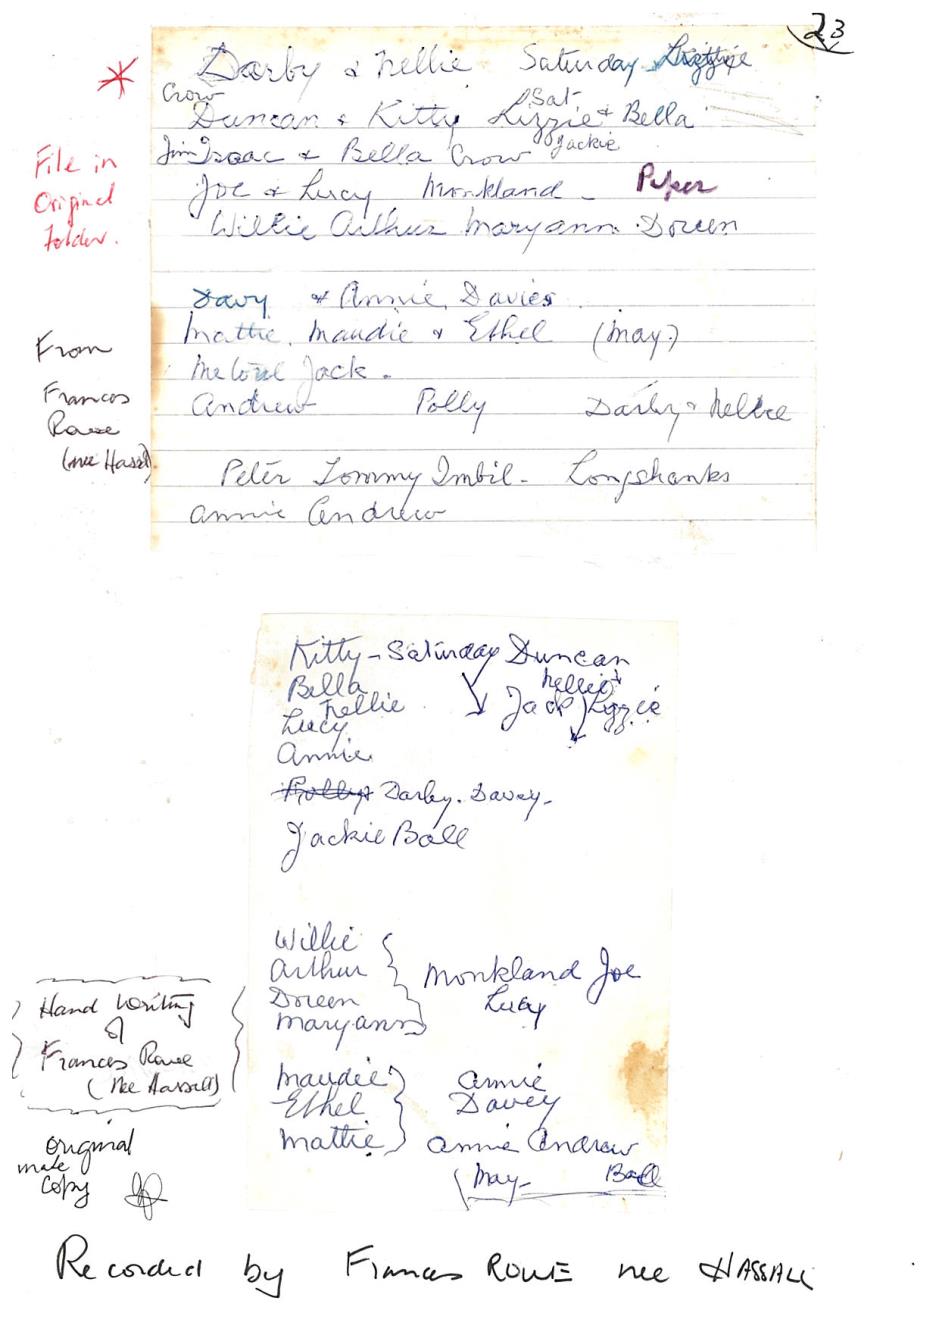 23
Darby & Nellie Saturday Lizzie
Crow Sat-
Duncan & Kitty Lizzie & Bella
Jim Isaac & Bella Crow Jackie
Joe & Lucy Monkland - Piper
Willie Arthur Maryann. Doreen
File in
Original
folder.
Davy & Annie Davies
Mattie, Maudie & Ethel (May.)
Jack.
Andrew Polly Darby & Nellie
Peter Tommy Imbil - Longshanks
Annie Andrew
From
Frances
Rowe
(nee Hassal)
Kitty - Saturday Duncan
Bella Nellie +
Nellie Jack Lizzie
Lucy
Annie
Polly Darby. Davey -
Jackie Ball
Willie
Arthur Monkland Joe
Doreen Lucy
Maryann
Maudie Annie
Ethel Davey
Mattie Annie Andrew
May - Ball
Hand Writing
of
Frances Rowe
(Nee Hassall)
Original
mate
Copy
Recorded by Frances ROWE nee HASSALL